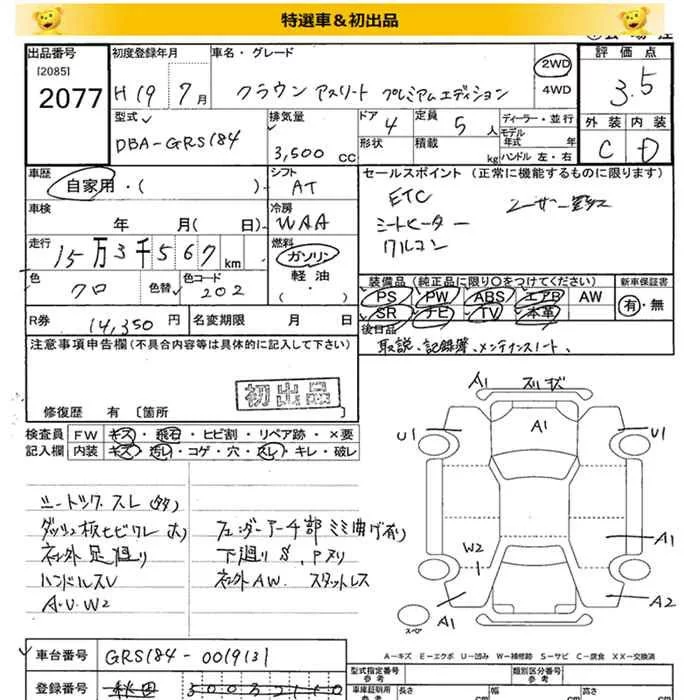 特選車＆初出品
出品番号 初度登録年月 車名・グレード 評価点
[2085]
2077 H19 7月 クラウン アスリート プレミアムエディション 2WD 4WD 3.5
型式 DBA-GRS184 排気量 3,500 cc ドア 4 定員 5人 ディーラー・並行 外装 内装
形状 積載 kg モデル年式 年 ハンドル 左・右 C D
車歴 自家用・( ) シフト AT セールスポイント (正常に機能するものに限ります)
ETC
シートヒーター
ワルコン
車検 年 月( 日) 冷房 WAA
走行 15万3千567km 燃料 ガソリン 軽油 ・( )
色 クロ 色替 色コード 202
装備品 (純正品に限り○をつけてください) 新車保証書
PS PW ABS エアB AW 有・無
SR ナビ TV 本革
R券 14,350円 名変期限 月 日
後日品
取説、記録簿、メンテナンスノート、
注意事項申告欄(不具合内容等は具体的に記入して下さい)
初出品
修復歴 有 [箇所
検査員 FW キズ・飛石・ヒビ割・リペア跡・×要
記入欄 内装 キズ・汚レ・コゲ・穴・スレ・キレ・破レ
ダッシュ板ヒビワレ
フェンダーアーチ部ミミ曲げ有り
ネジ外足廻り
下廻りS、Pヌリ
ハンドルスレ
ネジ外AW. スタットレス
A.U.W2
A1
A1
U1
U1
W2
A1
A1
A2
スペア
A－キズ E－エクボ U－凹み W－補修跡 S－サビ C－腐食 XX－交換済
車台番号 GRS184-0019131
登録番号
型式指定番号 参考 類別区分番号 参考
車庫証明用 参考 長さ cm 幅 cm 高さ cm